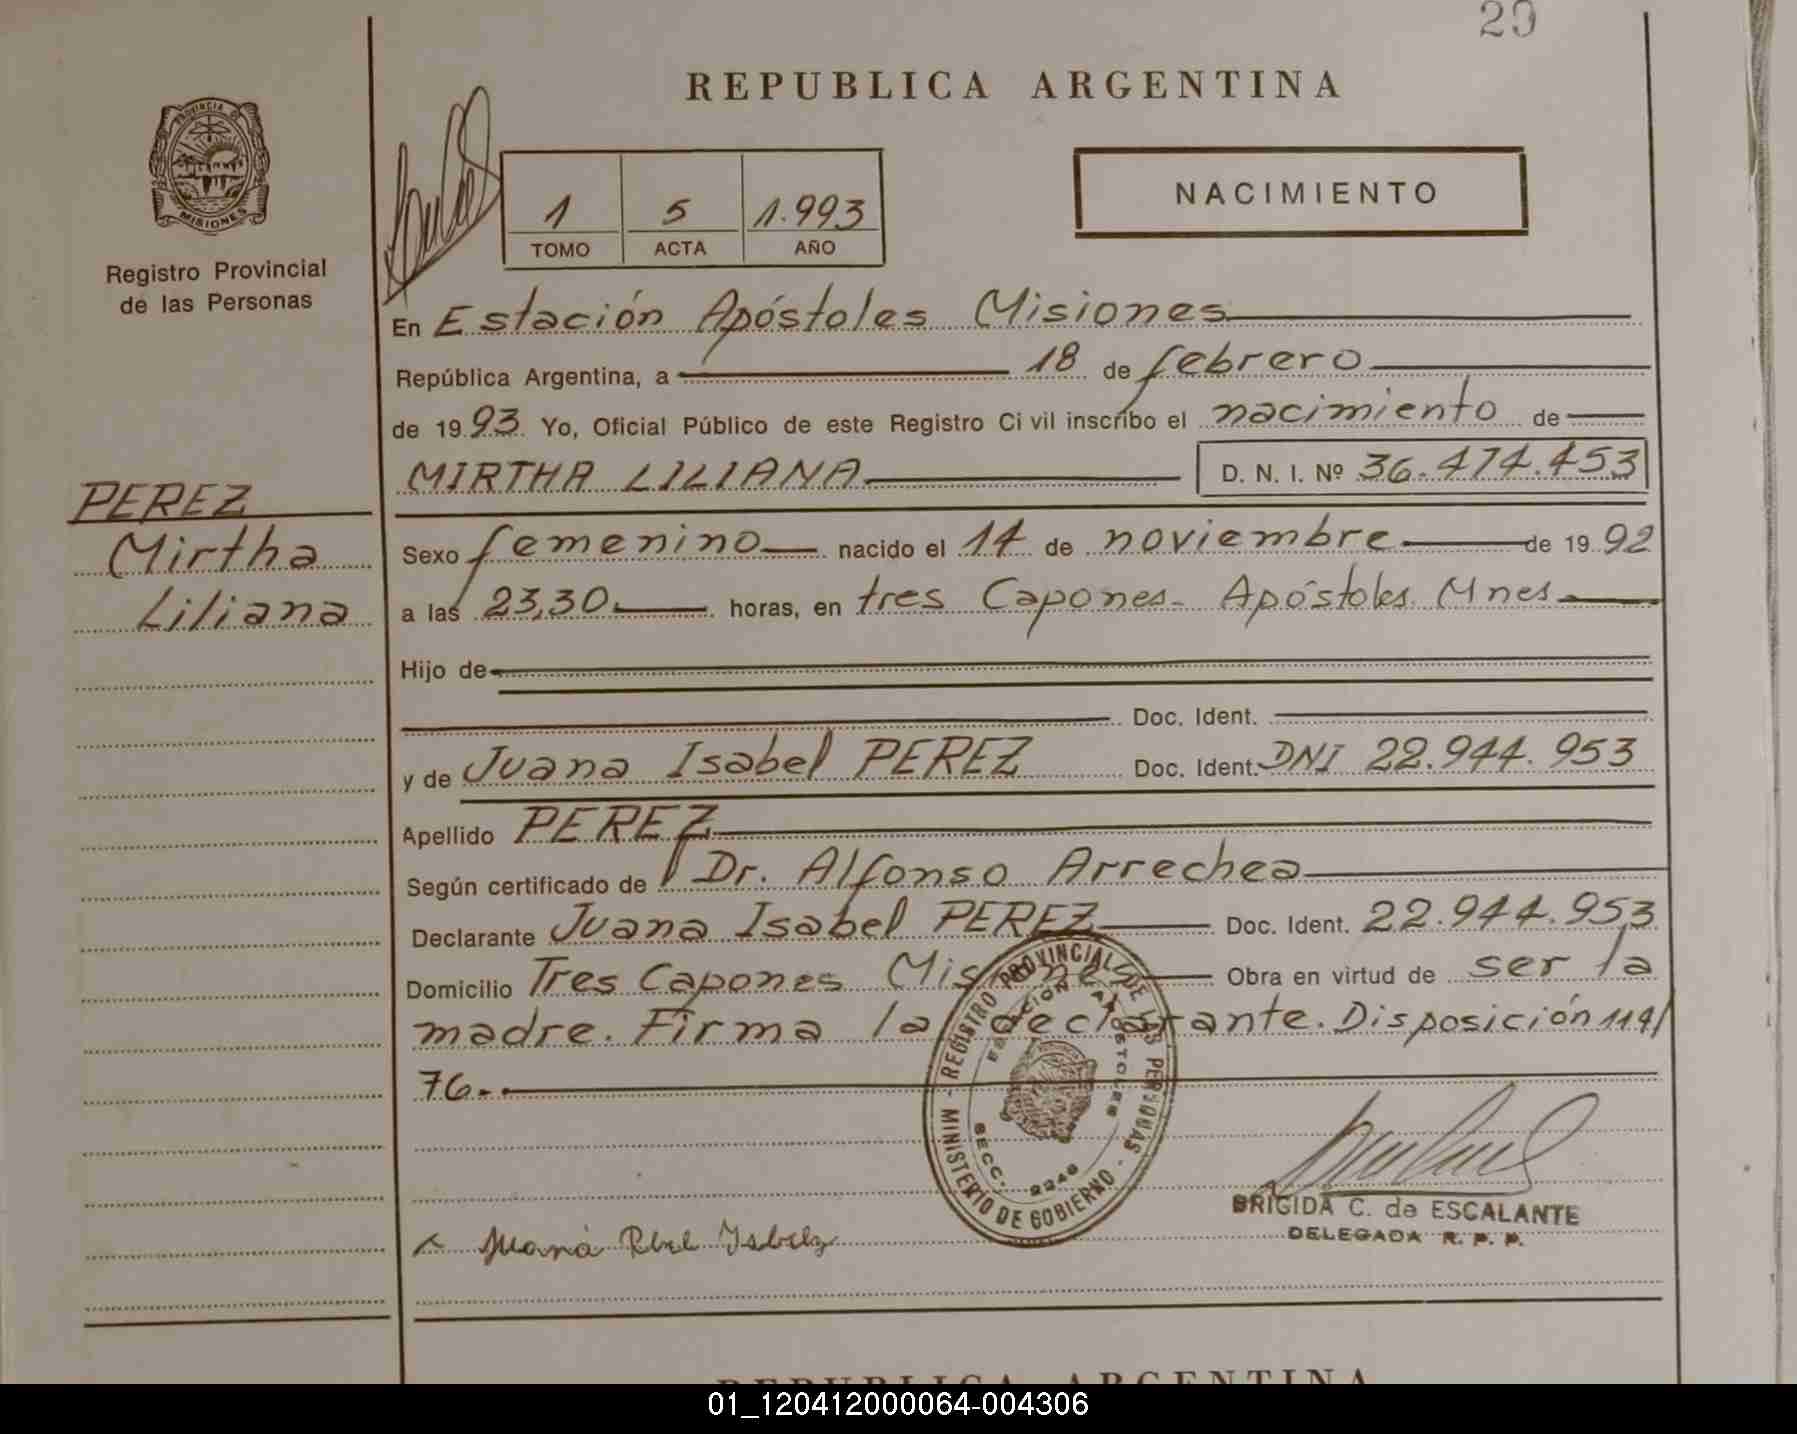 20
REPUBLICA ARGENTINA
PROVINCIA DE
MISIONES
Registro Provincial
de las Personas
1 5 1.993
TOMO ACTA AÑO
NACIMIENTO
En Estación Apóstoles Misiones
República Argentina, a 18 de febrero
de 1993 Yo, Oficial Público de este Registro Civil inscribo el nacimiento de
MIRTHA LILIANA D. N. I. Nº 36.474.453
PEREZ
Mirtha
Liliana
Sexo femenino nacido el 14 de noviembre de 1992
a las 23,30 horas, en tres Capones- Apóstoles Mnes-
Hijo de
Doc. Ident.
y de Juana Isabel PEREZ Doc. Ident. DNI 22.944.953
Apellido PEREZ
Según certificado de Dr. Alfonso Arrechea
Declarante Juana Isabel PEREZ Doc. Ident. 22.944.953
Domicilio Tres Capones Misiones Obra en virtud de ser la
madre. Firma la declarante. Disposición 119/
76.-
REGISTRO PROVINCIAL DE LAS PERSONAS - MINISTERIO DE GOBIERNO -
ESTACION APOSTOLES
SECC. 2246
BRIGIDA C. de ESCALANTE
DELEGADA R. P. P.
REPUBLICA ARGENTINA
01_120412000064-004306